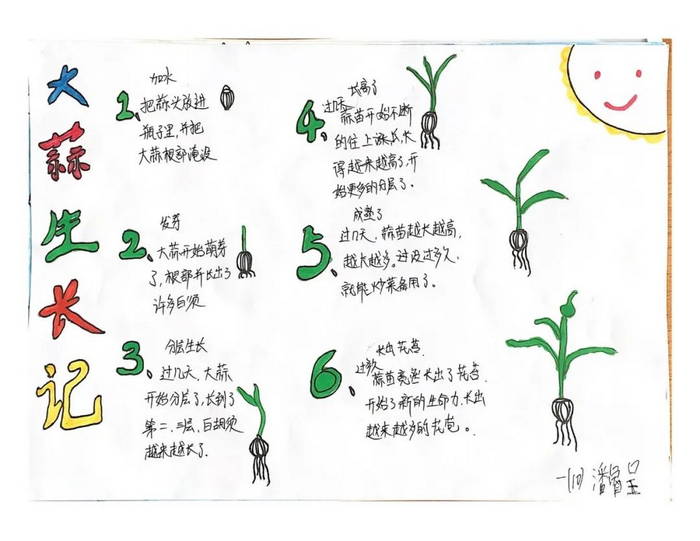 大蒜生长记
1、
加水
把蒜头放进
瓶子里,并把
大蒜根部淹没
2、
发芽
大蒜开始萌芽
了,根部并长出了
许多白须
3、
分层生长
过几天,大蒜
开始分层了,长到了
第二、三层,白胡须
越来越长了.
4、
长高了
过几天
蒜苗开始不断
的往上涨长,长
得越来越高了,开
始更多的分层了.
5、
成熟了
过几天,蒜苗越长越高,
越大越多。过没过多久,
就能炒菜备用了。
6、
长出花苞.
过多久
蒜苗竟然长出了花苞.
开始了新的生命力,长出
越来越多的花苞。
一(10) 潘